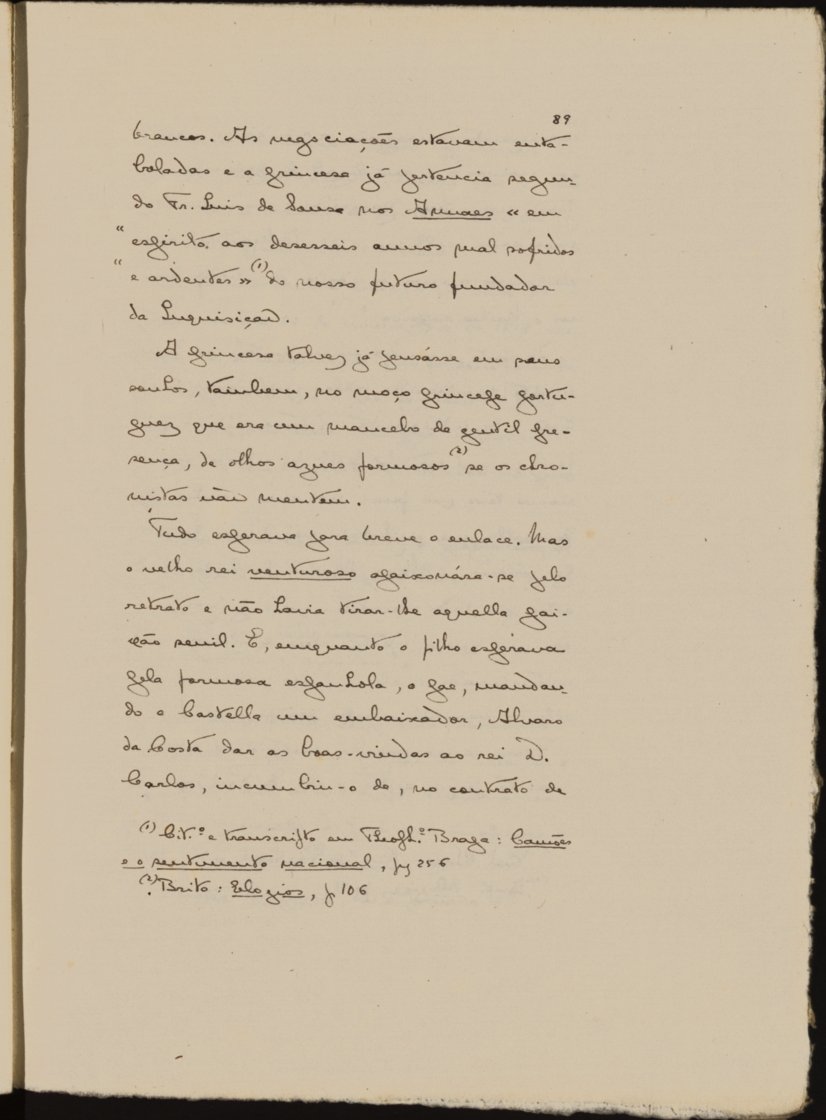 89
brancos. As negociações estavam enta-
boladas e a princesa já pertencia segun-
do Fr. Luis de Sousa nos Annaes « em
" espirito aos desesseis annos mal sofridos
" e ardentes » (1) do nosso futuro fundador
da Inquisição.
A princesa talvez já pensásse em seus
sonhos, tambem, no moço principe portu-
guez que era um mancebo de gentil pre-
sença, de olhos azues formosos (2) se os chro-
nistas não mentem.
Tudo esperava para breve o enlace. Mas
o velho rei venturoso apaixonára-se pelo
retrato e não havia tirar-lhe aquella pai-
xão senil. E, emquanto o filho esperava
pela formosa espanhola, o pae, mandan-
do a Castella um embaixador, Alvaro
da Costa dar as boas-vindas ao rei D.
Carlos, incumbiu-o de, no contrato de
(1) Cit.º e transcripto em Theoph.º Braga: Camões
e o sentimento nacional, pg 256
(2) Brito: Elogios, p 106